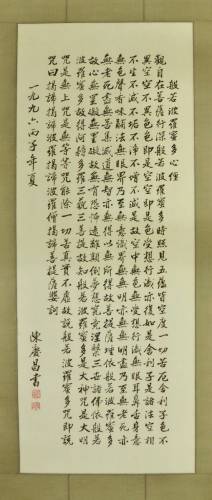 般若波羅蜜多心經
觀自在菩薩行深般若波羅蜜多時照見五蘊皆空度一切苦厄舍利子色不
異空空不異色色即是空空即是色受想行識亦復如是舍利子是諸法空相
不生不滅不垢不淨不增不減是故空中無色無受想行識無眼耳鼻舌身意
無色聲香味觸法無眼界乃至無意識界無無明亦無無明盡乃至無老死亦
無老死盡無苦集滅道無智亦無得以無所得故菩提薩埵依般若波羅蜜多
故心無罣礙無罣礙故無有恐怖遠離顛倒夢想究竟涅槃三世諸佛依般若
波羅蜜多故得阿耨多羅三藐三菩提故知般若波羅蜜多是大神咒是大明
咒是無上咒是無等等咒能除一切苦真實不虛故說般若波羅蜜多咒即說
咒曰揭諦揭諦波羅揭諦波羅僧揭諦菩提薩婆訶
一九九六丙子年夏
陳慶昌書